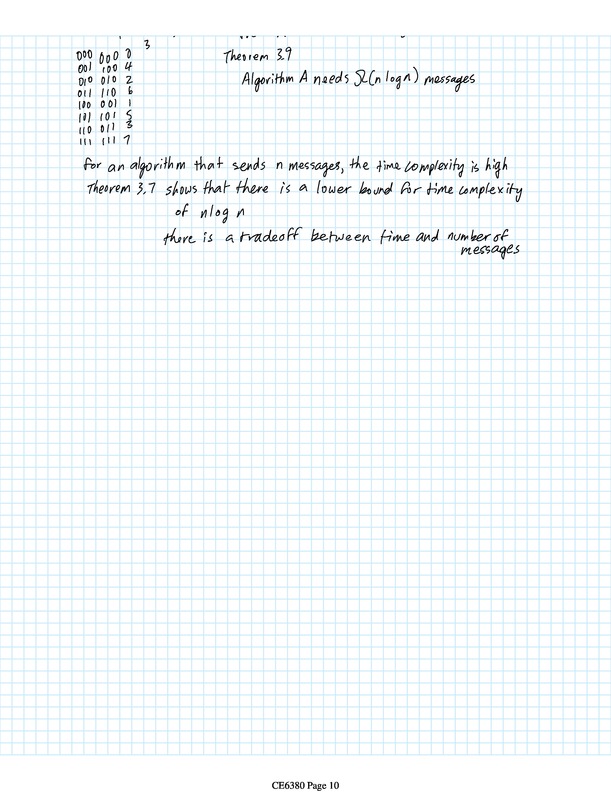 3
000 000 0
001 100 4
010 010 2
011 110 6
100 001 1
101 101 5
110 011 3
111 111 7
Theorem 3.9
Algorithm A needs Ω(n log n) messages
for an algorithm that sends n messages, the time complexity is high
Theorem 3.7 shows that there is a lower bound for time complexity
of nlog n
there is a tradeoff between time and number of
messages
CE6380 Page 10